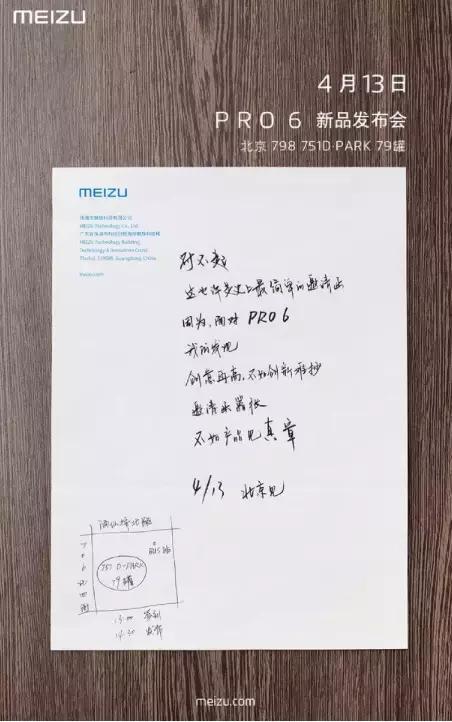 MEIZU
4月13日
PRO 6 新品发布会
北京 798 751D·PARK 79罐
MEIZU
珠海市魅族科技有限公司
MEIZU Technology Co., Ltd.
MEIZU Technology Building,
Technology & Innovation Coast
Zhuhai, 519085, Guangdong, China
meizu.com
对不起
这也许是史上最简单的邀请函
因为,面对 PRO 6
我们发现
创意再高,不如创新难抄
邀请函嚣张
不如产品见真章
4/13 北京见
酒仙桥北路
751 D-PARK
79罐
13:00 签到
14:30 发布
meizu.com